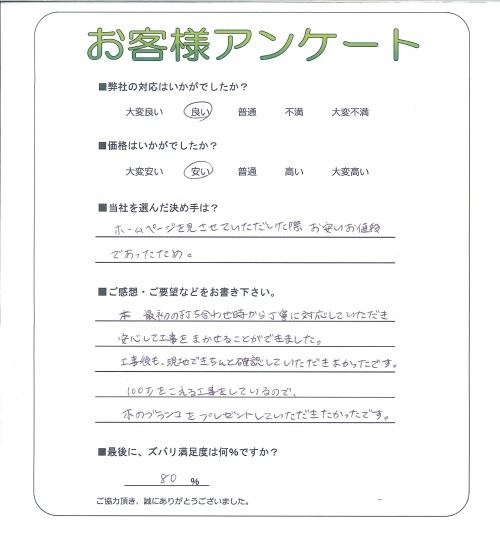 お客様アンケート
■弊社の対応はいかがでしたか？
大変良い 良い 普通 不満 大変不満
■価格はいかがでしたか？
大変安い 安い 普通 高い 大変高い
■当社を選んだ決め手は？
ホームページを見させていただいた際 お安いお値段
であったため。
■ご感想・ご要望などをお書き下さい。
最初の打ち合わせ時から丁寧に対応していただき
安心して工事をまかせることができました。
工事後も、現地できちんと確認していただきよかったです。
100万をこえる工事をしているので、
木のブランコをプレゼントしていただきたかったです。
■最後に、ズバリ満足度は何％ですか？
80 ％
ご協力頂き、誠にありがとうございました。